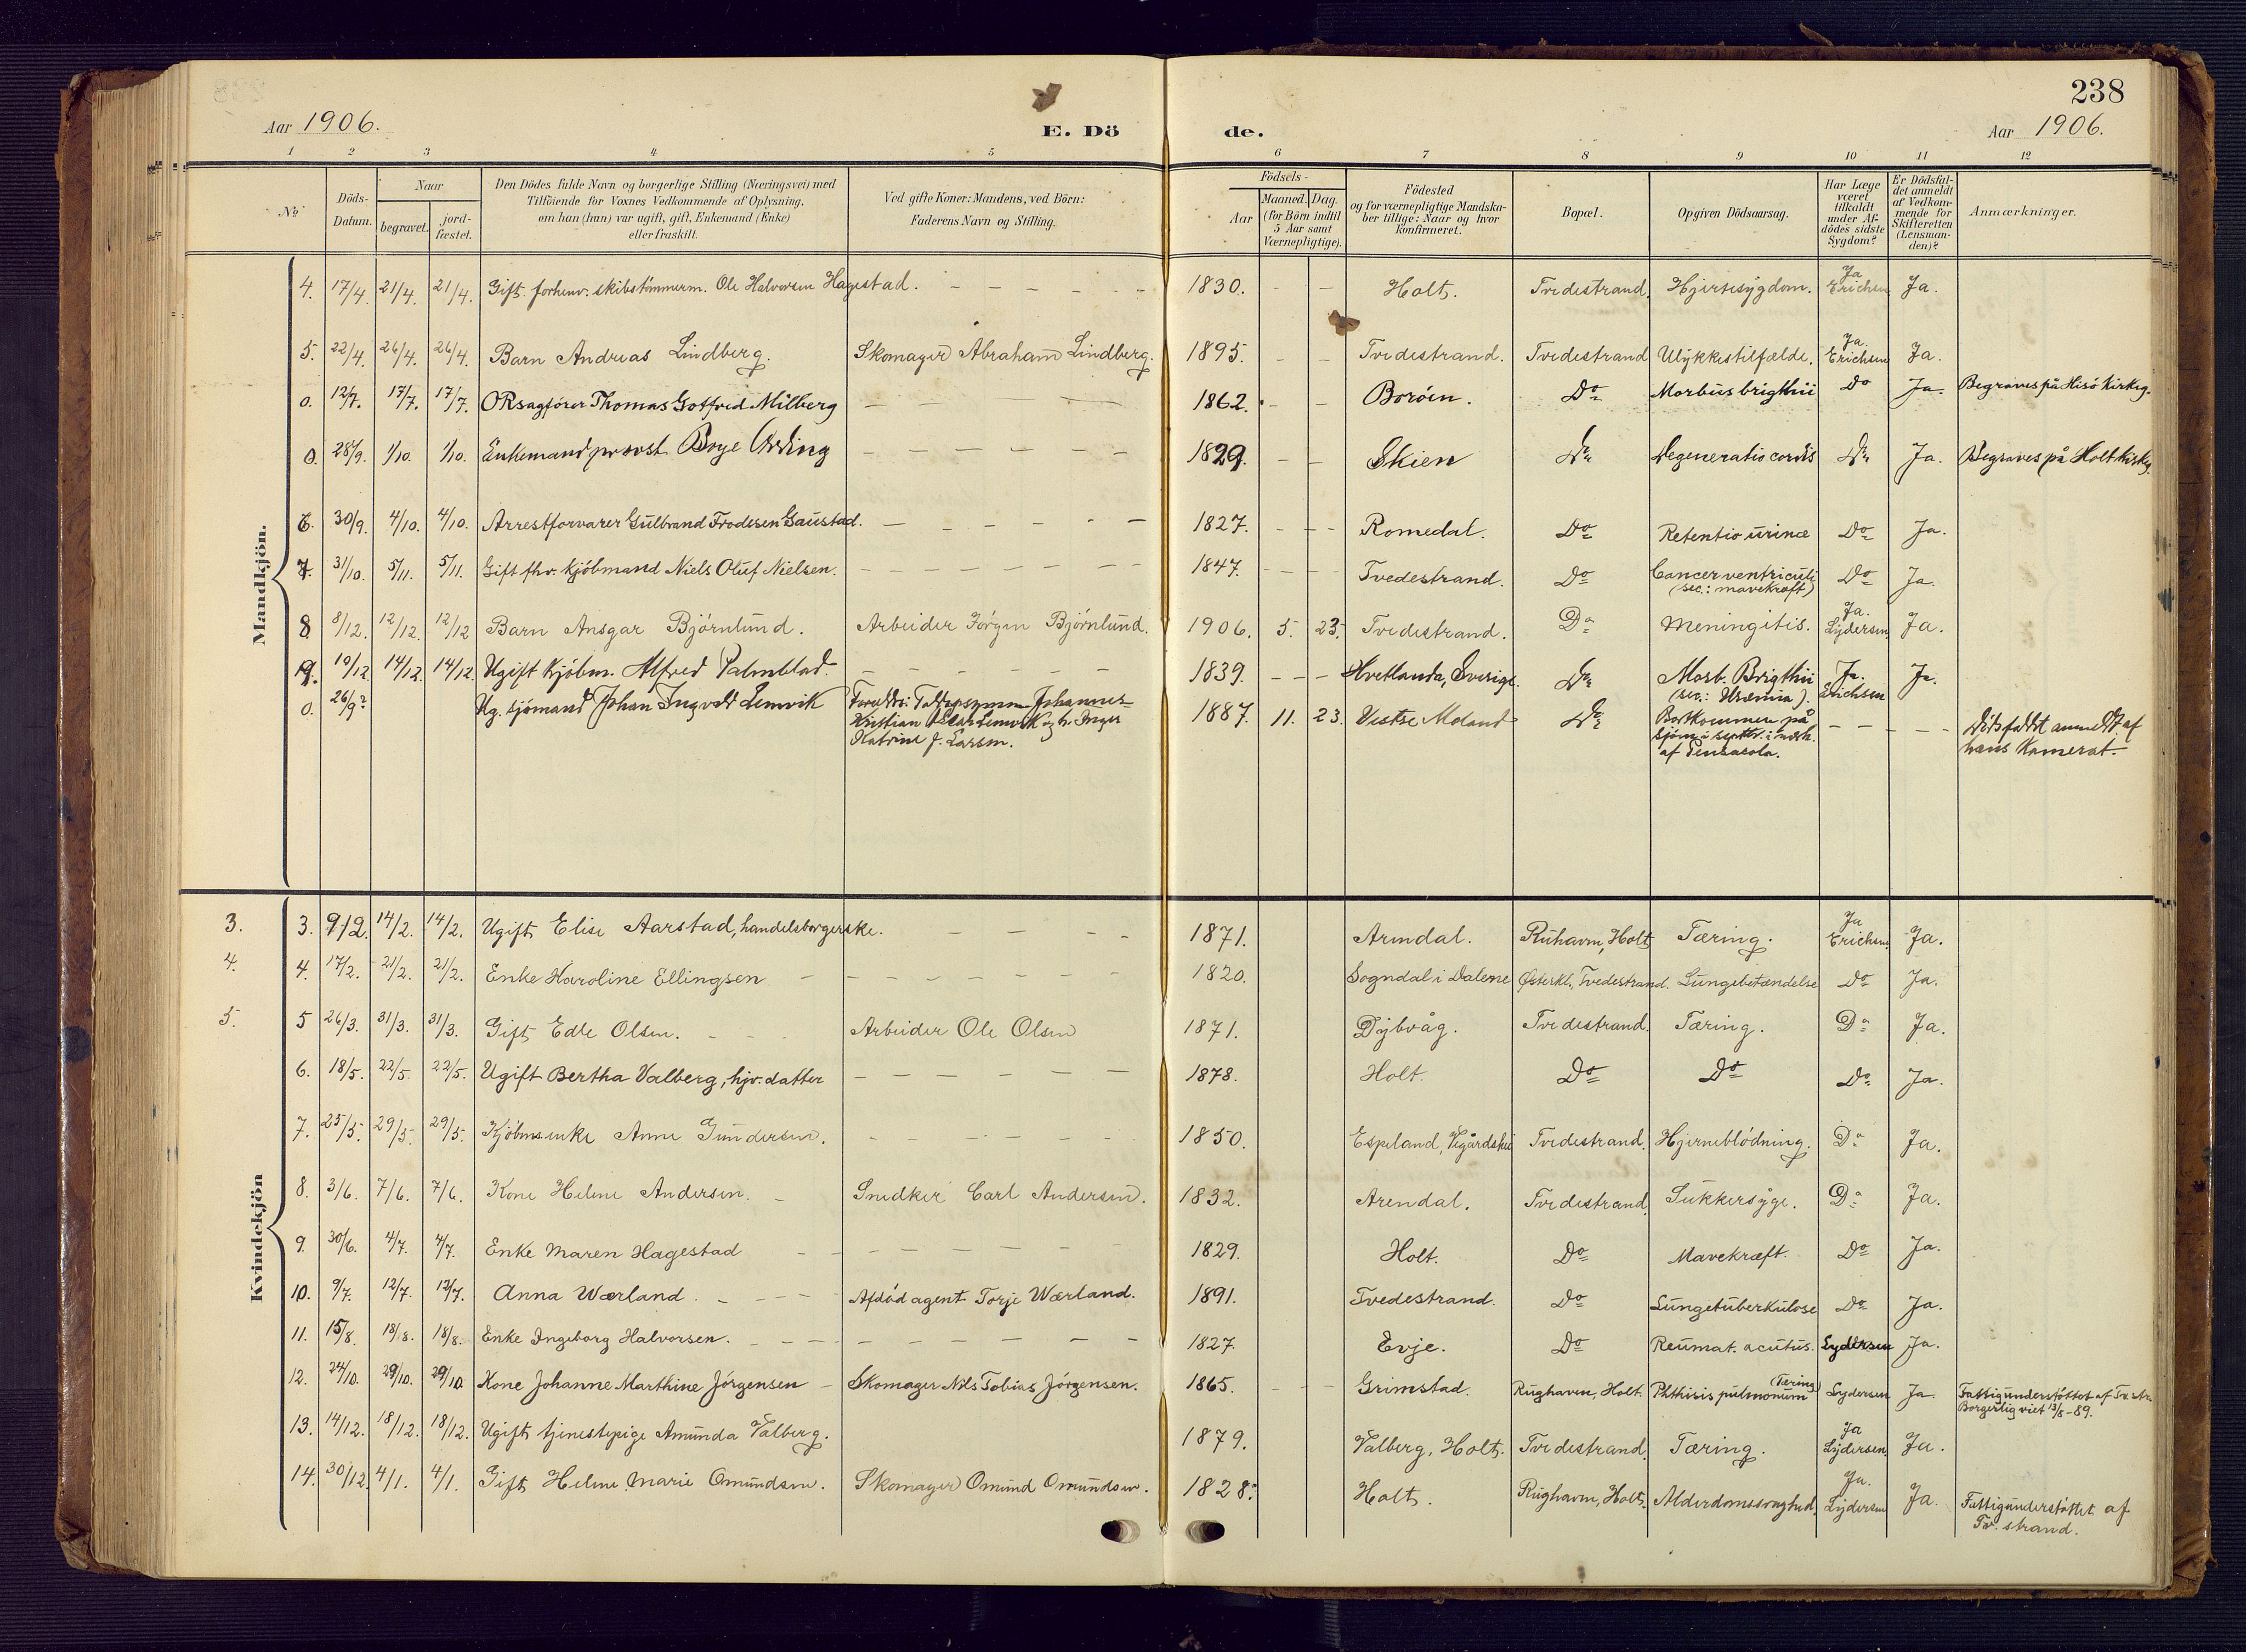 238
Aar 1906.
E. Dö de.
Aar 1906.
1 2 3 4 5 6 7 8 9 10 11 12
No
Döds-Datum.
Naar
begravet.
jord-fæstet.
Den Dödes fulde Navn og borgerlige Stilling (Næringsvei) med
Tilföiende for Voxnes Vedkommende af Oplysning,
om han (hun) var ugift, gift, Enkemand (Enke)
eller fraskilt.
Ved gifte Koner: Mandens, ved Börn:
Faderens Navn og Stilling.
Födsels-
Aar
Maaned. Dag.
(for Börn indtil
5 Aar samt
Værnepligtige).
Födested
og for værnepligtige Mandska-
ber tillige: Naar og hvor
konfirmeret.
Bopæl.
Opgiven Dödsaarsag.
Har Læge
været
tilkaldt
under Af-
dödes sidste
Sygdom?
Er Dödsfal-
det anmeldt
af Vedkom-
mende for
Skifteretten
(Lensman-
den)?
Anmærkninger.
Mandkjön.
4. 17/4. 21/4. 21/4. Gift forhenv. skibstömmerm. Ole Halvorsen Hagestad. 1830. Holt. Tvedestrand. Hjertesygdom. Ja Erichsen Ja.
5. 22/4. 26/4. 26/4. Barn Andreas Lindberg. Skomager Abraham Lindberg. 1895. Tvedestrand. Tvedestrand Ulykkestilfælde. Ja. Erichsen Ja.
0. 12/7. 17/7. 17/7. ORsagförer Thomas Gotfred Milberg 1862. Boröen. Do Morbus brigthii Do Ja. Begraves på Hisö Kirkeg.
0. 28/9. 1/10. 1/10. Enkemand provst Boye Ording 1829. Skien Do Degeneratio cordis Do Ja. Begraves på Holt Kirkeg.
6. 30/9. 4/10. 4/10. Arrestforvarer Gulbrand Frodesen Gaustad. 1827. Romedal. Do Retentio urinæ Do Ja.
7. 31/10. 5/11. 5/11. Gift fhv. kjöbmand Niels Oluf Nielsen. 1847. Tvedestrand. Do Cancer ventriculi (sec.: mavekræft) Do Ja.
8 8/12. 12/12. 12/12 Barn Ansgar Björnlund. Arbeider Jörgen Björnlund. 1906. 5. 23. Tvedestrand. Do Meningitis. Ja. Lydersen Ja.
9. 10/12 14/12 14/12. Ugift Kjöbm. Alfred Palmblad. 1839. Hvetlanda, Sverige. Do Morb. Brigthii (sec.: Uræmia). Ja. Erichsen Ja.
0. 26/9? Ug. sjömand Johan Ingvald Lemvik Forældre: Johannes Kristian Lemvik og h. Inger Katrine J. Larsen. 1887. 11. 23. Vestre Moland Do Bortkommen på sjöen i septbr. i nærh. af Pensacola. Dödsfaldet anmeldt af hans Kamerat.
Kvindekjön
3. 3. 9/2. 14/2. 14/2. Ugift Elise Aarstad, handelsborgerske. 1871. Arendal. Ruhavn, Holt Tæring. Ja Erichsen Ja.
4. 4. 17/2. 21/2. 21/2. Enke Karoline Ellingsen 1820. Sogndal i Dalene Österkl., Tvedestrand. Lungebetændelse Do Ja.
5. 5 26/3. 31/3. 31/3. Gift Edle Olsen. Arbeider Ole Olsen 1871. Dybvåg. Tvedestrand. Tæring. Do Ja.
6. 18/5. 22/5. 22/5. Ugift Bertha Valberg, hjv. datter 1878. Holt. Do Do Do Ja.
7. 25/5. 29/5. 29/5. Kjöbms.enke Anne Gundersen. 1850. Espeland, Vegårdshei Tvedestrand. Hjerneblödning. Do Ja.
8. 3/6. 7/6. 7/6. Kone Helene Andersen. Snedker Carl Andersen. 1832. Arendal. Tvedestrand. Sukkersyge. Do Ja.
9. 30/6. 4/7. 4/7. Enke Maren Hagestad 1829. Holt. Do Mavekræft. Do Ja.
10. 9/7. 12/7. 12/7. Anna Wærland. Afdöd agent Torje Wærland. 1891. Tvedestrand. Do Lungetuberkulose Do Ja.
11. 15/8. 18/8. 18/8. Enke Ingeborg Halvorsen. 1827. Evje. Do Reumat. acutus. Lydersen Ja.
12. 24/10. 29/10. 29/10. Kone Johanne Marthine Jörgensen Skomager Nils Tobias Jörgensen. 1865. Grimstad. Rughaven, Holt. Phthisis pulmonum (Tæring) Lydersen Ja. Fattigunderstöttet af Tv. str. Borgerlig viet 13/8-89.
13. 14/12. 18/12. 18/12. Ugift tjenestepige Amunda Valberg. 1879. Valberg, Holt. Tvedestrand. Tæring. Ja Lydersen Ja.
14. 30/12. 4/1. 4/1. Gift Helene Marie Omundsen. Skomager Omund Omundsen. 1828. Holt. Rughavn, Holt. Alderdomssvaghed. Ja. Lydersen Ja. Fattigunderstöttet af Tv. strand.